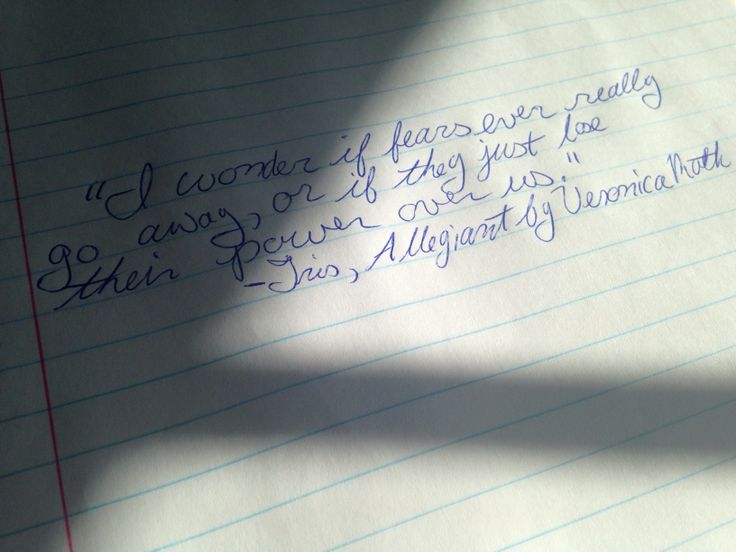 "I wonder if fears ever really
go away, or if they just lose
their power over us."
-Tris, Allegiant by Veronica Roth